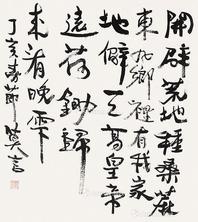 開闢荒地種桑麻
東北鄉裡有我家
地僻天高皇帝
遠荷鋤歸
來看晚霞
丁亥春節莫言